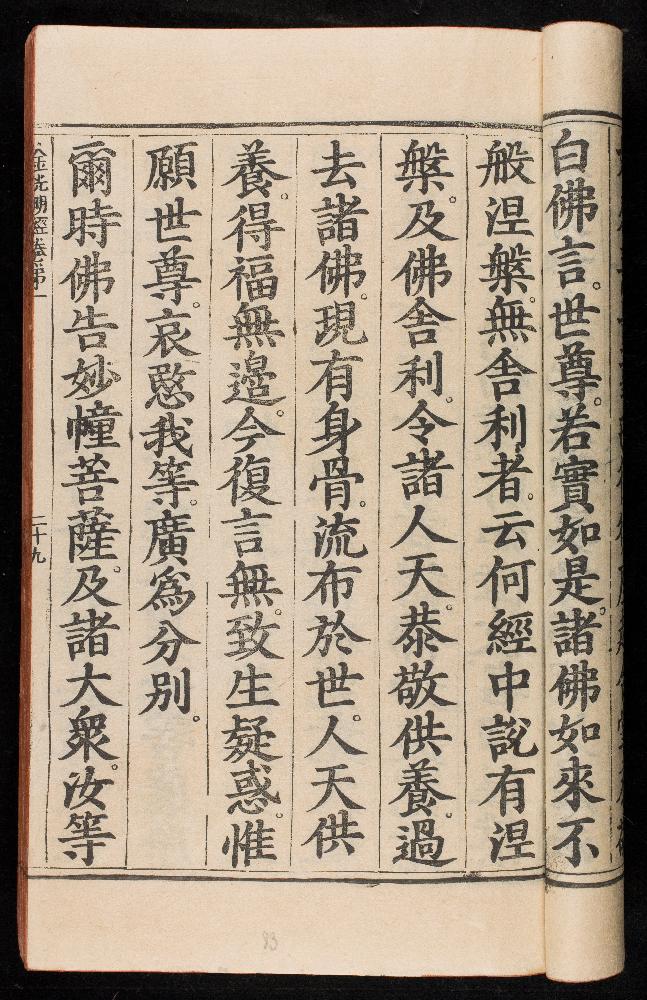 白佛言。世尊。若實如是。諸佛如來不
般涅槃。無舍利者。云何經中說有涅
槃。及佛舍利。令諸人天。恭敬供養。過
去諸佛。現有身骨。流布於世。人天供
養。得福無邊。今復言無。致生疑惑。惟
願世尊。哀愍我等。廣爲分別。
爾時佛告妙幢菩薩。及諸大衆。汝等
金光明經卷第一
二十九
93